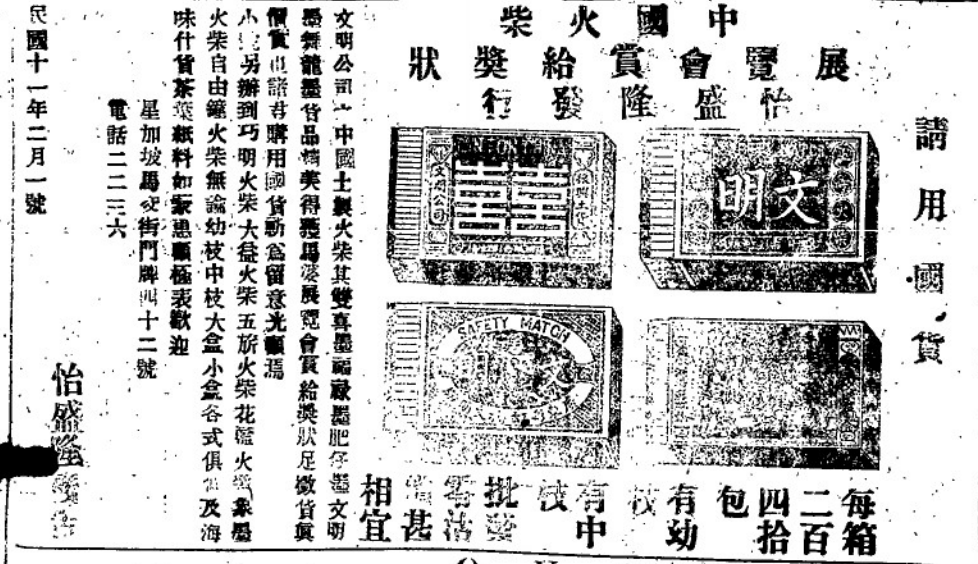 請用國貨
中國火柴
展覽會賞給獎狀
怡盛隆發行
文明
文明公司
SAFETY MATCH
每箱
二百
四拾
包
有幼
枝
有中
枝
批發
零沽
價甚
相宜
文明公司之中國土製火柴其雙喜墨福祿墨肥仔墨文明
墨舞龍墨貨品精美得獲馬婆展覽會賞給獎狀足徵貨真
價實也諸君購用國貨勛為留意光顧焉
小號另辦到巧明火柴大益火柴五旂火柴花籃火柴象墨
火柴自由鐘火柴無論幼枝中枝大盒小盒各式俱備及海
味什貨茶葉紙料如蒙惠顧極表歡迎
星加坡馬交街門牌四十二號
電話二二三六
怡盛隆謹告
民國十一年二月一號